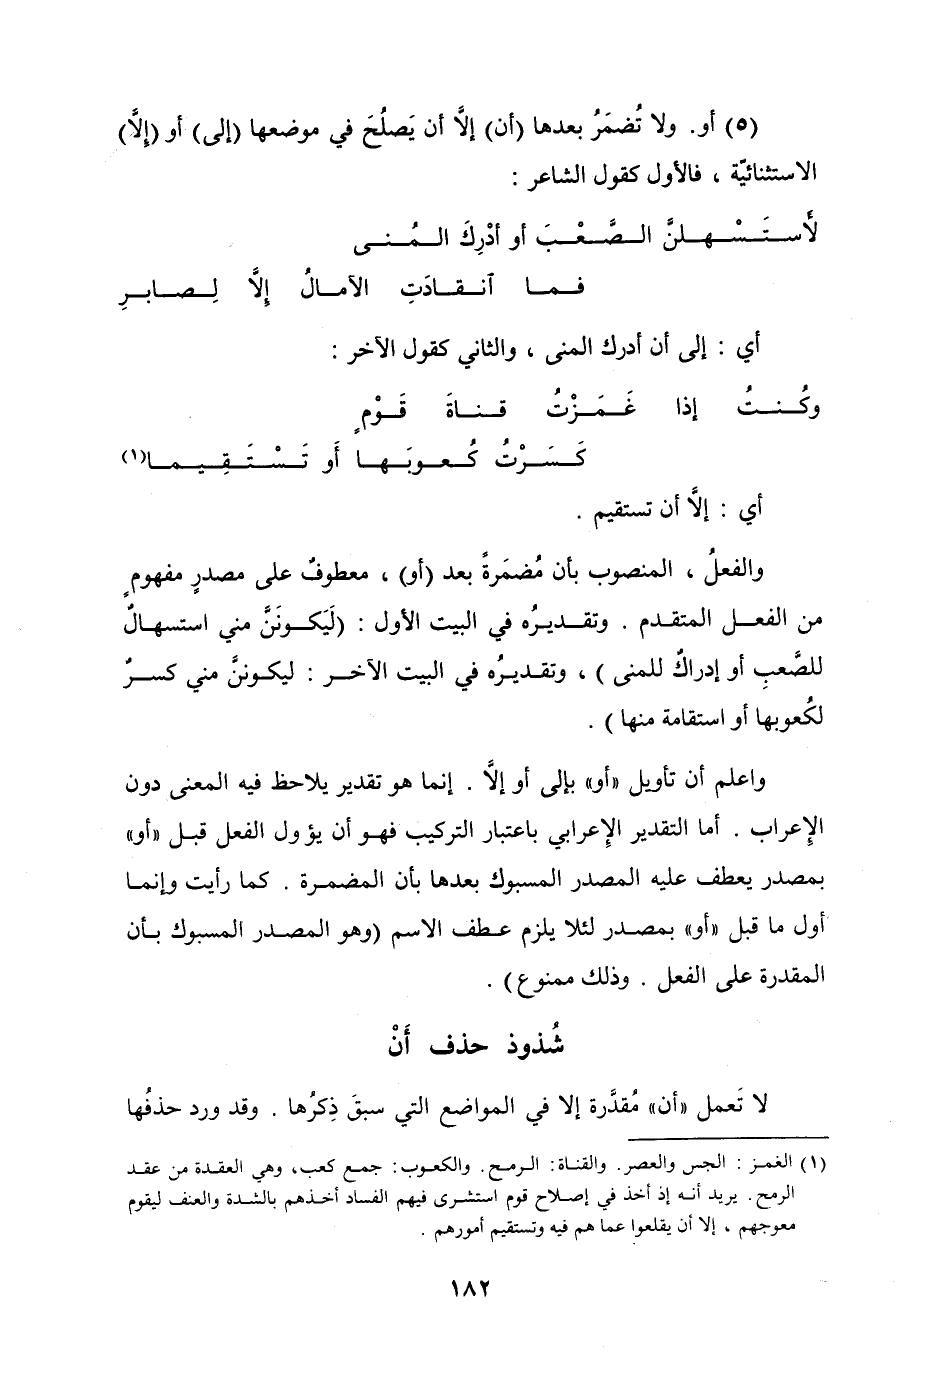 (٥) أو. ولا تُضمَرُ بعدها (أن) إلَّا أن يَصلُحَ في موضعها (إلى) أو (إلَّا)
الاستثنائيّة ، فالأول كقول الشاعر :
لأَستَسْهِلنَّ الصَّعْبَ أو أدْرِكَ المُنى
فما آنقادَتِ الآمالُ إلَّا لِصابرِ
أي : إلى أن أدرك المنى ، والثاني كقول الآخر :
وكُنتُ إذا غَمَزْتُ قناةَ قَوْمٍ
كَسَرْتُ كُعوبَها أو تَسْتَقِيما(١)
أي : إلَّا أن تستقيم .
والفعلُ ، المنصوب بأن مُضمَرةً بعد (أو) ، معطوفٌ على مصدرٍ مفهومٍ
من الفعل المتقدم . وتقديرُه في البيت الأول : (لَيَكونَنَّ مني استسهالٌ
للصَّعبِ أو إدراكٌ للمنى ) ، وتقديرُه في البيت الآخر : ليكوننَّ مني كسرٌ
لكُعوبها أو استقامة منها ) .
واعلم أن تأويل «أو» بإلى أو إلَّا . إنما هو تقدير يلاحظ فيه المعنى دون
الإعراب . أما التقدير الإعرابي باعتبار التركيب فهو أن يؤول الفعل قبل «أو»
بمصدر يعطف عليه المصدر المسبوك بعدها بأن المضمرة . كما رأيت وإنما
أول ما قبل «أو» بمصدر لئلا يلزم عطف الاسم (وهو المصدر المسبوك بأن
المقدرة على الفعل . وذلك ممنوع) .
شُذوذ حذف أَنْ
لا تَعمل «أن» مُقدَّرة إلا في المواضع التي سبقَ ذِكرُها . وقد ورد حذفُها
(١) الغمز : الجس والعصر. والقناة: الرمح. والكعوب: جمع كعب، وهي العقدة من عقد
الرمح. يريد أنه إذ أخذ في إصلاح قوم استشرى فيهم الفساد أخذهم بالشدة والعنف ليقوم
معوجهم ، إلا أن يقلعوا عما هم فيه وتستقيم أمورهم .
١٨٢